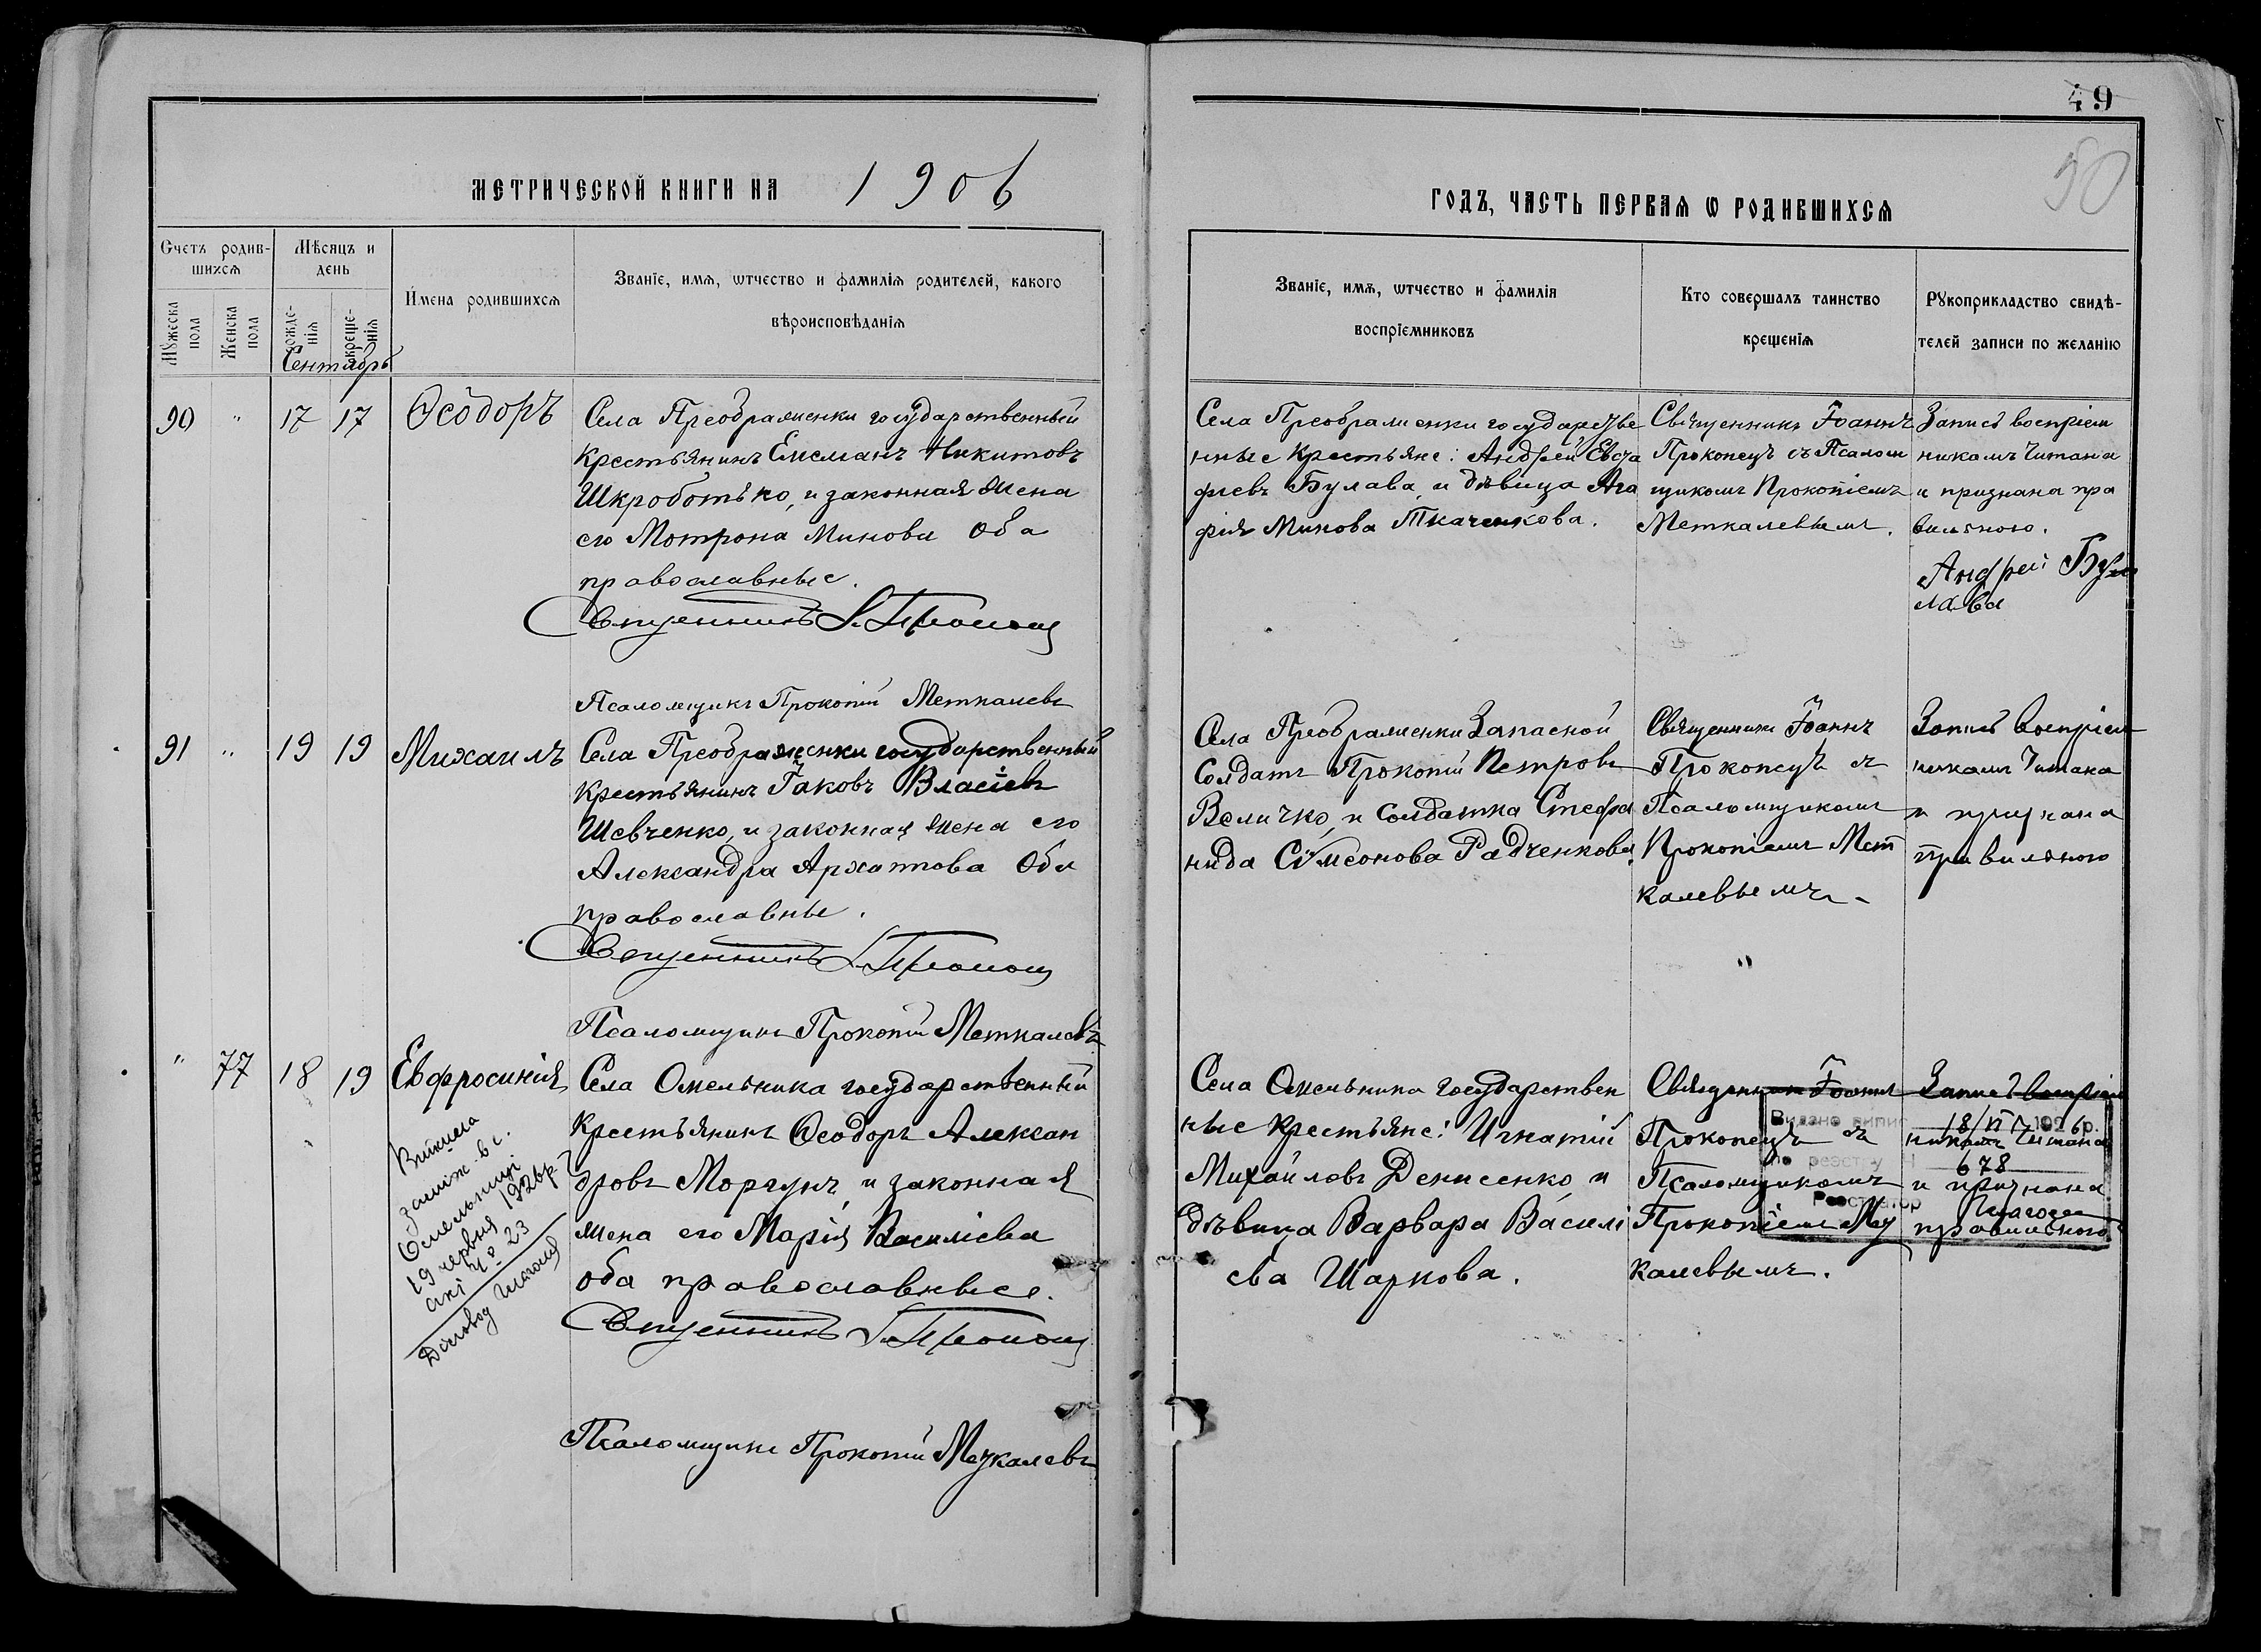 49
50
МЕТРИЧЕСКОЙ КНИГИ НА 1906
ГОДЪ, ЧАСТЬ ПЕРВАЯ Ѡ РОДИВШИХСЯ
Счетъ родив-
шихся
Мѣсяцъ и
день
Мꙋжеска
пола
Женска
пола
рожде-
нія
креще-
нія
Сентябрь
Имена родившихся
Званіе, имя, ѡтчество и фамилія родителей, какого
вѣроисповѣданія
Званіе, имя, ѡтчество и фамилія
воспріемниковъ
Кто совершалъ таинство
крещенія
Рꙋкоприкладство свидѣ-
телей записи по желанію
90 " 17 17 Ѳеодоръ
Села Преображенки государственный
крестьянинъ Емеліанъ Никитовъ
Шкроботько, и законная жена
его Мотрона Минова Оба
православные.
Священникъ І. Прокопец
Псаломщикъ Прокопій Меткалевъ
Села Преображенки государстве
нные крестьяне: Андрей Евста
фіевъ Булава, и дѣвица Ага
фія Минова Ткаченкова.
Священникъ Іоаннъ
Прокопецъ съ Псалом
щикомъ Прокопіемъ
Меткалевымъ.
Запись воспріем
никамъ читана
и признана пра
вильною.
Андрей Бул
лава
91 " 19 19 Михаилъ
Села Преображенки государственный
крестьянинъ Іаковъ Власіевъ
Шевченко, и законная жена его
Александра Архиппова Оба
православны.
Священникъ І. Прокопец
Псаломщикъ Прокопій Меткалевъ
Села Преображенки Запасной
Солдатъ Прокопій Петровъ
Величко, и солдатка Стефа
нида Сѵмеонова Радченкова.
Священникъ Іоаннъ
Прокопецъ съ
Псаломщикомъ
Прокопіемъ Мет
калевымъ.
"
Запись воспріем
никамъ читана
и признана
правильною
" 77 18 19 Евфросинія
Села Омельника государственный
крестьянинъ Ѳеодоръ Алексан
дровъ Моргунъ, и законная
жена его Марія Василіева
оба православные.
Священникъ І. Прокопец
Псаломщикъ Прокопій Меткалевъ
Вийшла
заміж в с.
Омельниці
19 червня 1926 р.
акт № 23
Діловод
Села Омельника государствен
ные крестьяне: Игнатій
Михайловъ Денисенко и
дѣвица Варвара Василі
ева Шаркова.
Священникъ Іоаннъ
Прокопецъ съ
Псаломщикомъ
Прокопіемъ Мет
калевымъ.
Запись воспріем
никамъ читана
и признана
правильною
Видано випис 18/VI 1926 р.
по реєстру № 678
Реєстратор